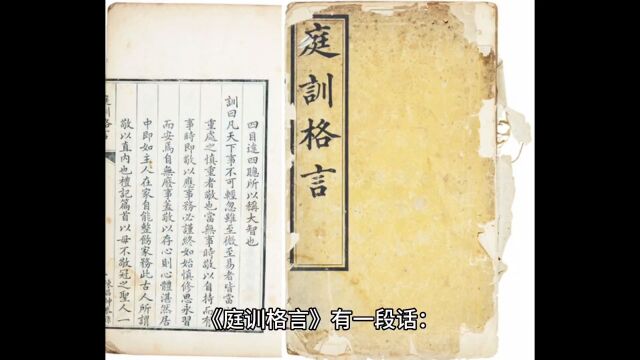 庭訓格言
四目達四聰所以稱大智也
訓曰凡天下事不可輕忽雖至微至易者皆當
重處之慎重者敬也當無事時敬以自持而有
事時即敬以應事務必謹終如始慎修思永習
而安焉自無廢事蓋敬以存心則心體湛然居
中即如主人在家自能整飭家務此古人所謂
敬以直內也禮記篇首以毋不敬冠之聖人一
庭訓格言
《庭训格言》有一段话：